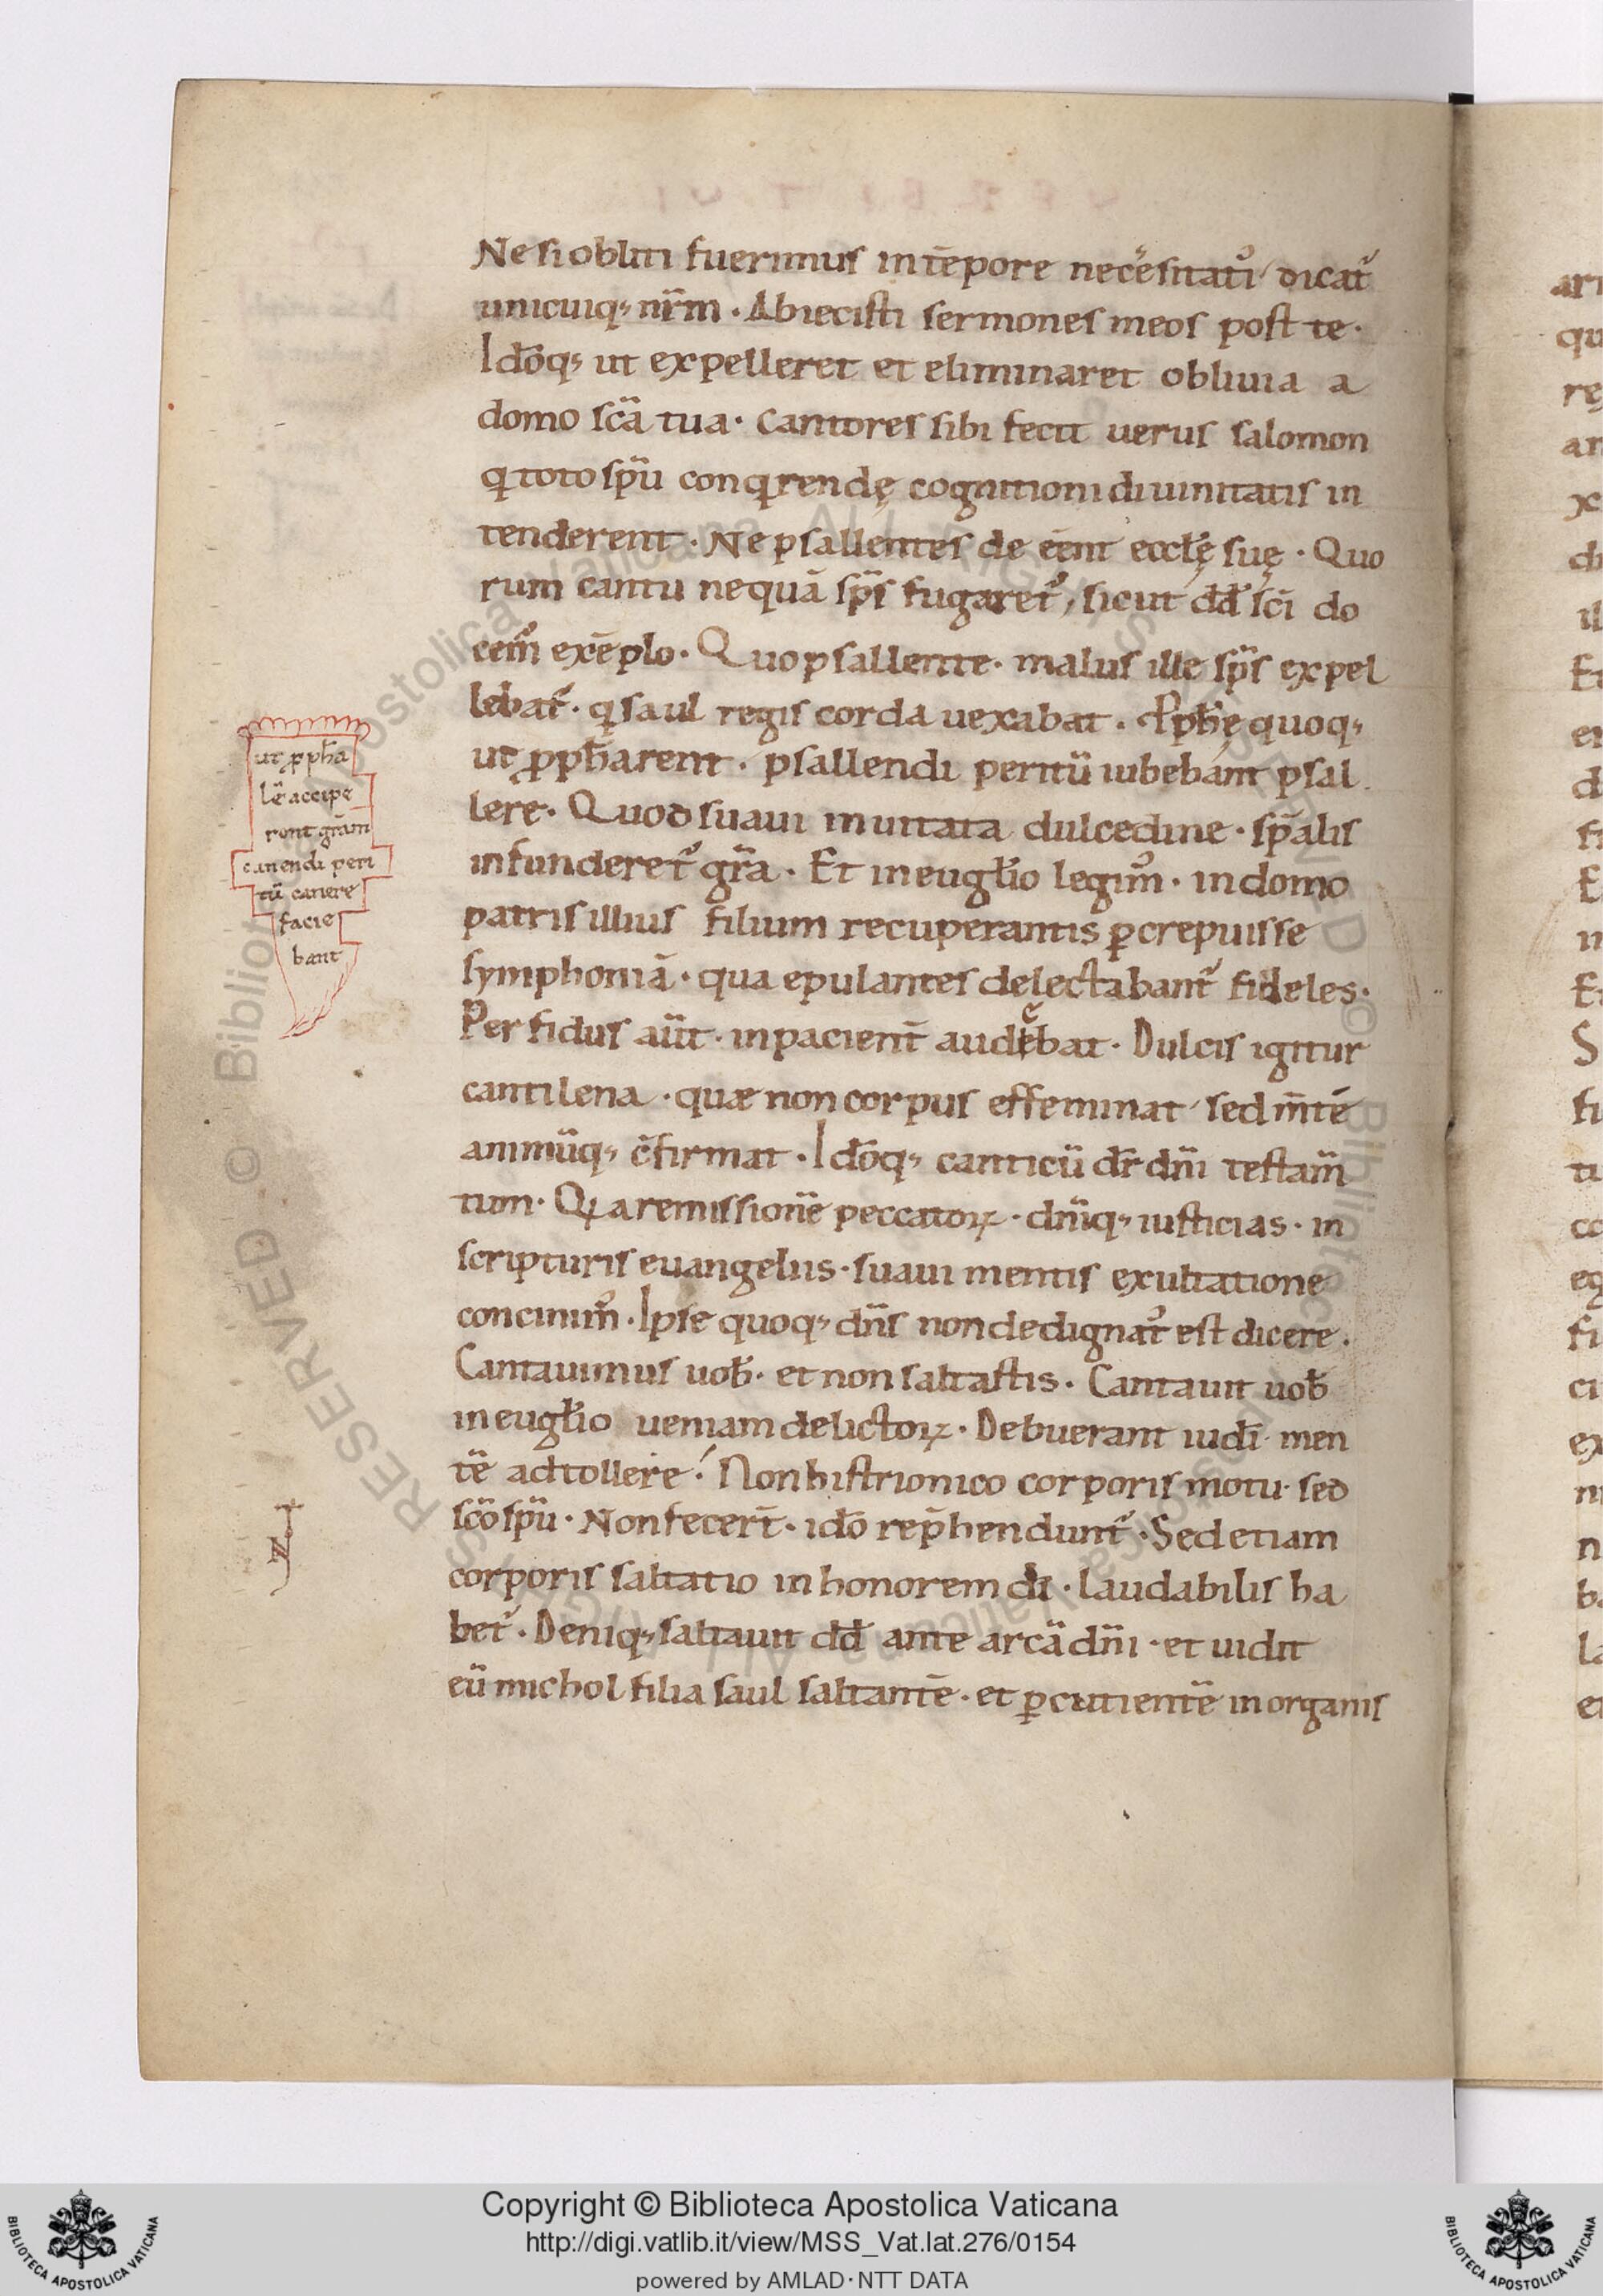 Ne si obliti fuerimus in tēpore necēsitatıͥ dicat᷑
unicuiq; nr̄m · Abiecisti sermones meos post te ·
Idōq; ut expelleret et eliminaret obliuia a
domo sc̄a tua · Cantores sibi fecit uerus salomon
q toto sp̄u conqrendę cognitioni diuinitatis in
tenderent · Ne psallentes de eēnt eccl̄ę suę · Quo
rum cantu nequā sp̄s fugaret᷑, sicut dd̄ sc̄i do
cem᷑ exēplo · Quo psallente · malus ille sp̄s expel
lebat᷑ · q saul regis corda uexabat · Pph̄ę quoq;
ut pph̄arent · psallendi peritū iubebant psal
lere · Quod suaui inuitata dulcedine · sp̄alis
infunderet᷑ gr̄a · Et in eugl̄io legim᷑ · in domo
patris illius filium recuperantis ꝑcrepuisse
symphoniā · qua epulantes delectabant᷑ fideles ·
Perfidus aūt · inpacient̄ audębat · Dulcis igitur
cantilena · quæ non corpus effeminat sed m̄tē
animūq; c̄firmat · Idōq; canticū dr̄ dn̄i testam̄
tum · Qa remissionē peccatoꝝ · dn̄iq; iusticias · in
scripturis euangeliis · suaui mentis exultatione
concinim᷑ · Ipse quoq; dn̄s non dedignat᷑ est dicere ·
Cantauimus uob̄ · et non saltastis · Cantauit uob̄
in eugl̄io ueniam delictoꝝ · Debuerant iudī men
tē adtollere · Non histrionico corporis motu · sed
sc̄o sp̄u · Non fecert̄ · idō rep̄hendunt᷑ · Sed etiam
corporis saltatio in honorem dī · laudabilis ha
bet᷑ · Deniq; saltauit dd̄ ante arcā dn̄i · et uidit
eū michol filia saul saltantē · et ꝑcutientē in organis
ut pph̄a
lē accipe
rent gr̄am
canendi peri
tū canere
facie
bant
Copyright © Biblioteca Apostolica Vaticana
http://digi.vatlib.it/view/MSS_Vat.lat.276/0154
powered by AMLAD·NTT DATA
BIBLIOTECA APOSTOLICA VATICANA
BIBLIOTECA APOSTOLICA VATICANA